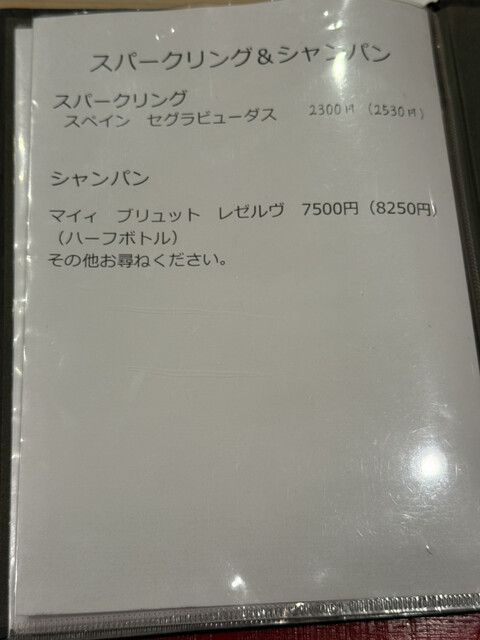 スパークリング&シャンパン
スパークリング
スペイン　セグラビューダス　2300円（2530円）
シャンパン
マイィ　ブリュット　レゼルヴ　7500円（8250円）
（ハーフボトル）
その他お尋ねください。